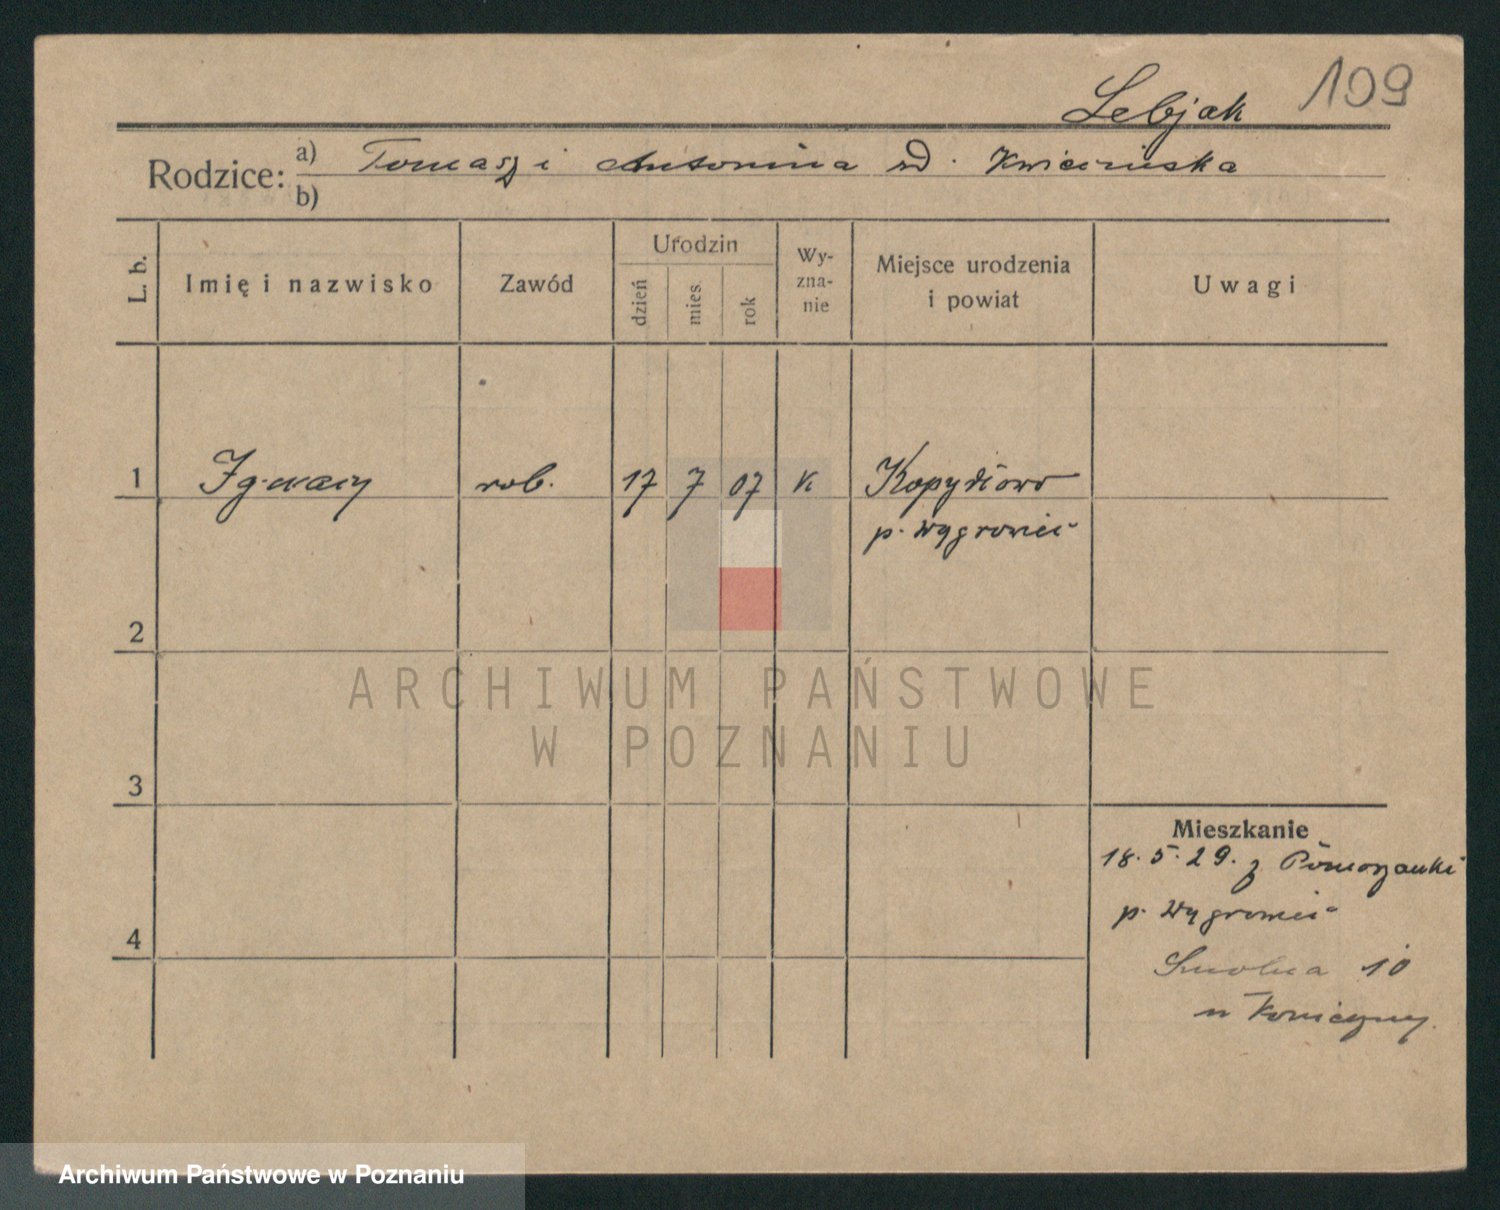 109
Lebjak
Rodzice: a) Tomasz i Antonina
b)
L. b.
Imię i nazwisko
Zawód
Urodzin
dzień
mies.
rok
Wy-
zna-
nie
Miejsce urodzenia
i powiat
Uwagi
1 Ignacy rob. 17 7 07 K Kopydłowo
p. Wągrowiec
2
3
4
Mieszkanie
18. 5. 29. z Pomorzanki
p. Wągrowiec
Smolna 10
ARCHIWUM PAŃSTWOWE
W POZNANIU
Archiwum Państwowe w Poznaniu